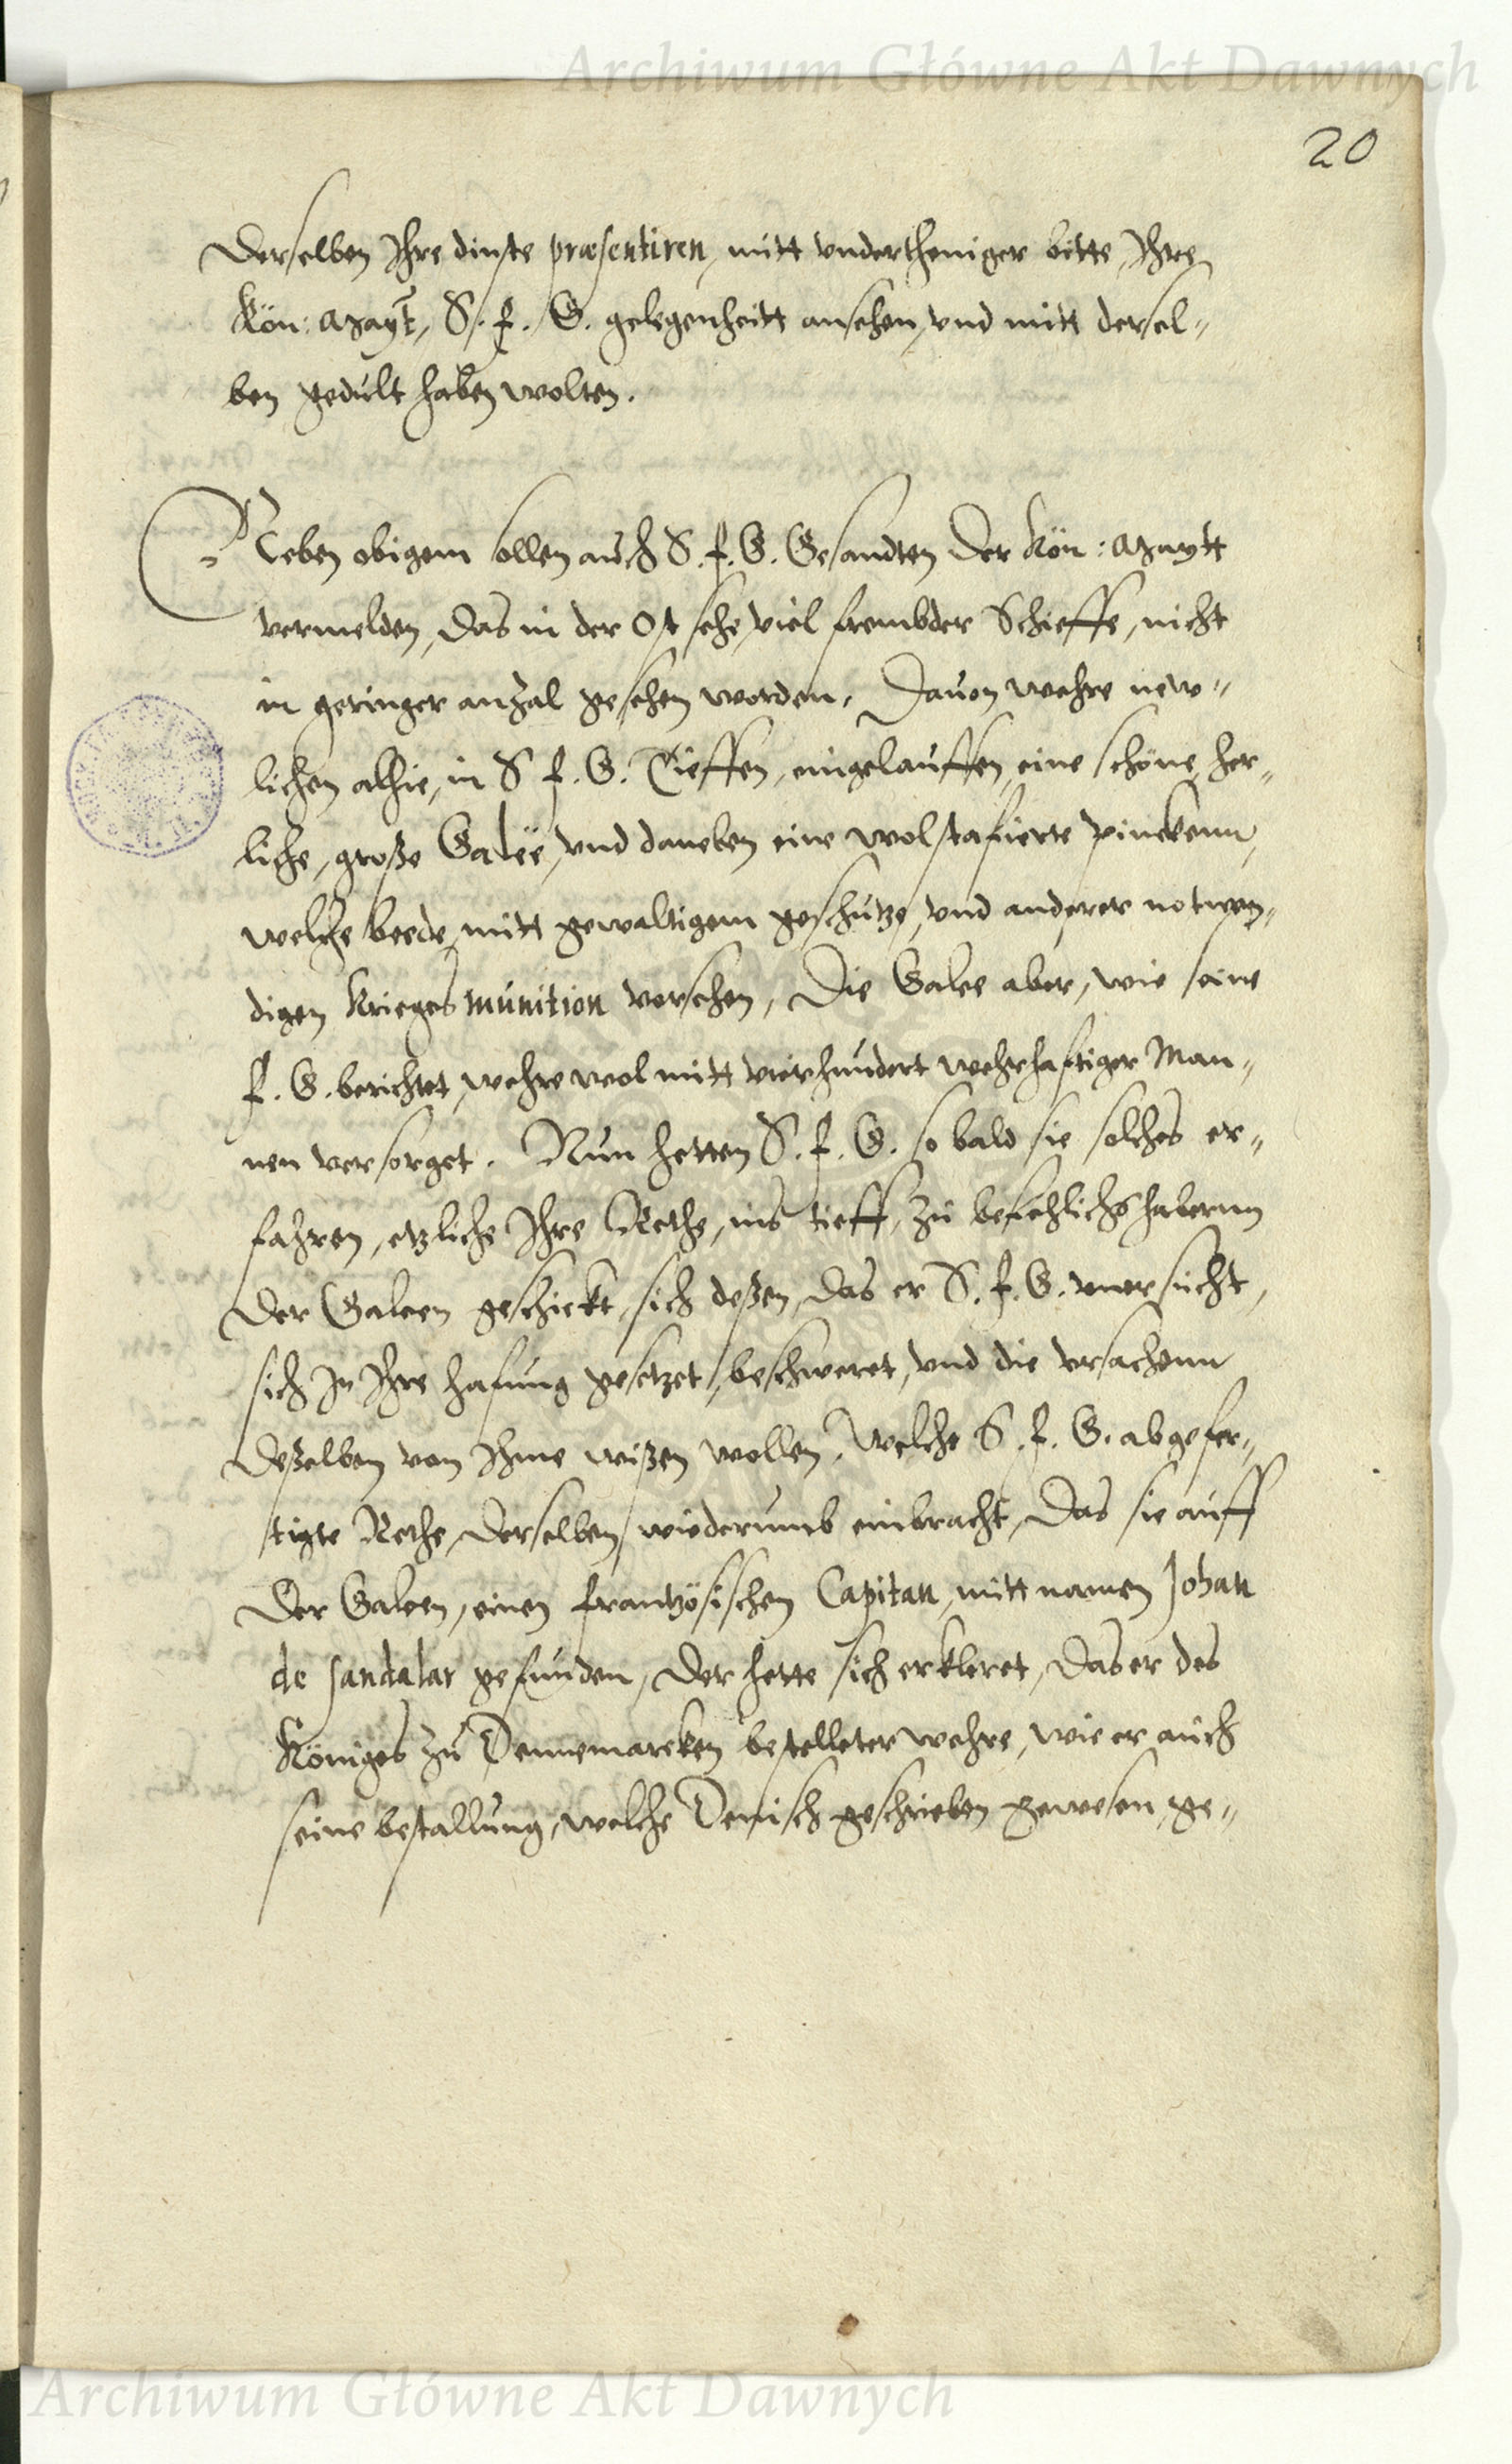 Archiwum Główne Akt Dawnych
20
Derselben Ihre dinste præsentiren, mitt vndertheniger bitte, Ihre
Kön: Mayt, S. f. G. gelegenheitt ansehen, vnd mitt dersel-
ben gedult haben wolten.
Neben obigem sollen auch S. f. G. Gesandten Der Kön: Maytt
vermelden, Das in der Ost sehe, viel frembder Schieffe, nicht
in geringer anzal gesehen worden, Dauon wehre new-
lichen alhie, in S. f. G. Tieffen, eingelauffen, eine schöne, her-
liche, große Galëe, vnd daneben eine wolstafierte pinckenn,
welche beede, mitt gewaltigem geschütze, vnd anderer notwen-
digen Krieges munition versehen, Die Galee aber, wie seine
f. G. berichtet, wehre wol mitt vierhundert wehrhaftiger Man-
nen versorget. Nun hetten S. f. G. so bald sie solches er-
fahren, etzliche Ihre Rethe, ins tieff, zu befehlichshabernn
Der Galeen geschickt, sich deßen, Das er S. f. G. vnersucht,
sich In Ihre hafung gesetzet, beschweret, vnd die vrsachenn
Deßelben von Ihme wißen wollen, Welche S. f. G. abgefer-
tigte Rethe, Derselben wiederumb einbracht, Das sie auff
Der Galeen, einen frantzösischen Capitan, mitt namen Johan
de sandalar gefunden, Der hette sich erkleret, Das er des
Königes zu Dennemarcken bestelleter wehre, wie er auch
seine bestallung, welche Denisch geschrieben gewesen, ge-
Archiwum Główne Akt Dawnych